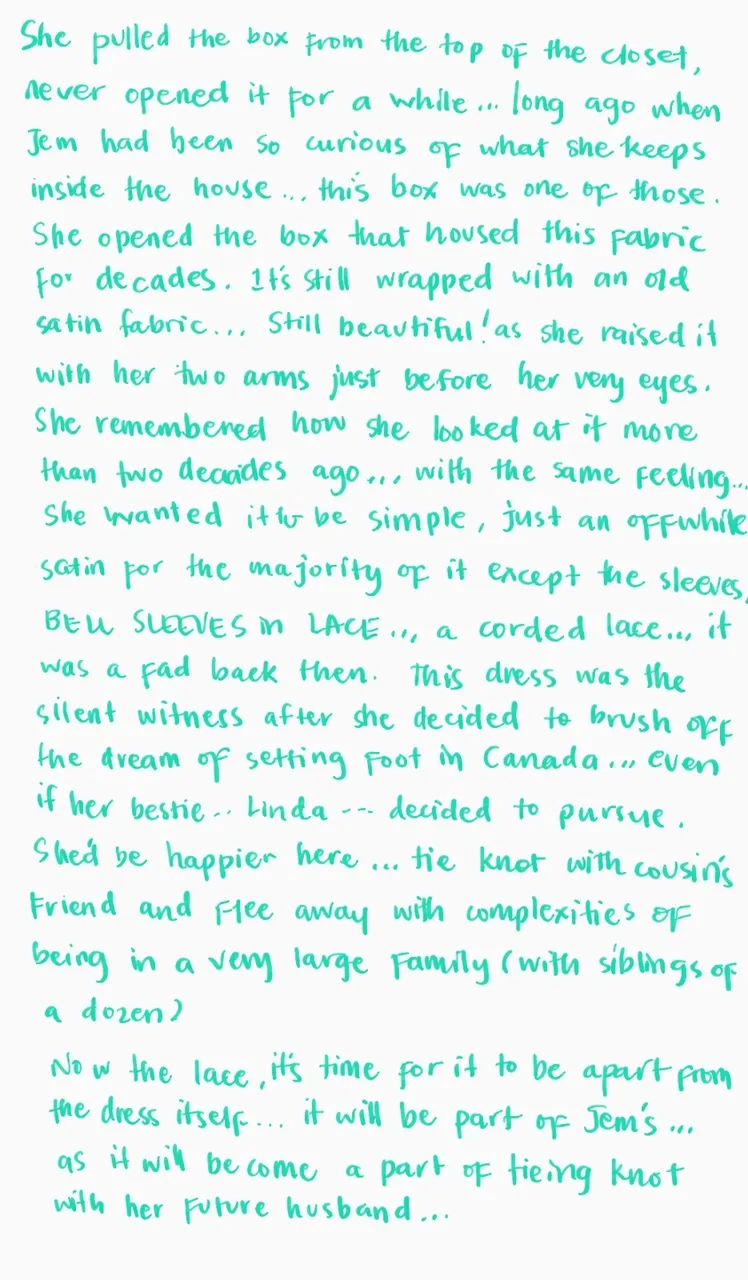 She pulled the box from the top of the closet,
never opened it for a while... long ago when
Jem had been so curious of what she keeps
inside the house... this box was one of those.
She opened the box that housed this fabric
for decades. It's still wrapped with an old
satin fabric... Still beautiful! as she raised it
with her two arms just before her very eyes.
She remembered how she looked at it more
than two decades ago... with the same feeling...
She wanted it to be simple, just an offwhite
satin for the majority of it except the sleeves.
BELL SLEEVES in LACE..., a corded lace..., it
was a fad back then. This dress was the
silent witness after she decided to brush off
the dream of setting foot in Canada... even
if her bestie.. Linda --- decided to pursue.
She'd be happier here... tie knot with cousin's
Friend and Flee away with complexities of
being in a very large Family (with siblings of
a dozen)
Now the lace, it's time for it to be apart from
the dress itself... it will be part of Jem's...
as it will become a part of tieing knot
with her future husband...